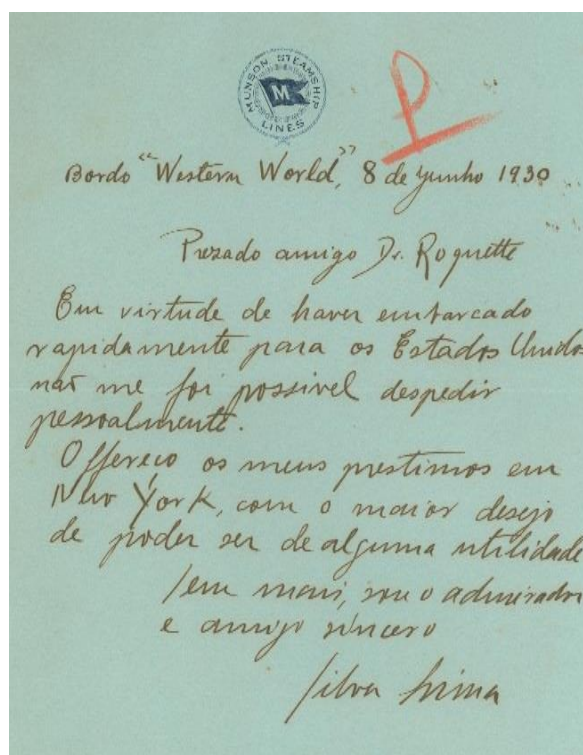 MUNSON STEAMSHIP
LINES
M
P
Bordo "Western World", 8 de Junho 1930
Prezado amigo Dr. Roquette
Em virtude de haver embarcado
rapidamente para os Estados Unidos
não me foi possivel despedir
pessoalmente.
Offereço os meus prestimos em
New York, com o maior desejo
de poder ser de alguma utilidade
Sem mais, sou o admirador
e amigo sincero
Silva Lima